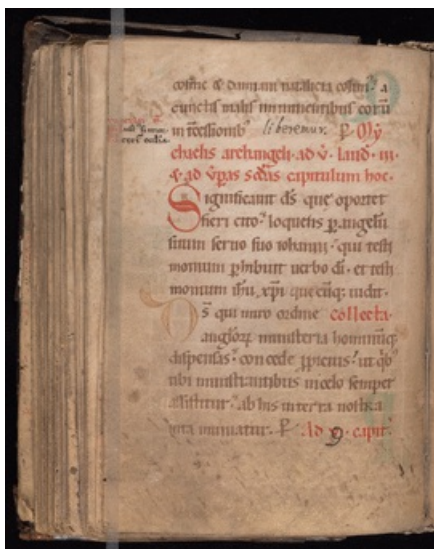 cosme & damiani natalicia colim᷒ a
cunctis malis imminentibus eorũ
int̃cessionib᷒ liberemur. P My
chaelis archangeli · ad v̄ · laud · iii ·
& · ad vp̄as sc̄das capitulum hoc ·
Significauit ds̄ que oportet
fieri cito · loquens p̱ angelũ
suum seruo suo iohanni · qui testi
monium p̱hibuit uerbo di · et testi
monium ihũ xp̄i quecũq; uidit ·
Ds̄ qui miro ordine collecta ·
angl̃oꝝ ministeria hominũq;
dispensas · concede p̱picius · ut q̇b᷒
tibi ministrantibus in celo semper
assistitur · ab his in terra nostra
uita muniatur · P Ad · capit̃